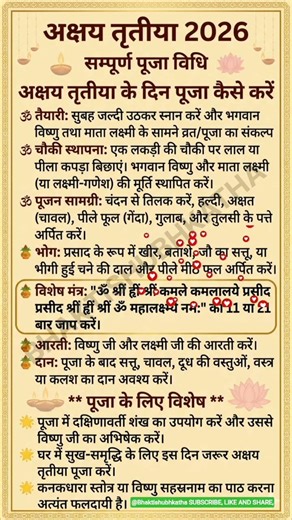 अक्षय तृतीया 2026
सम्पूर्ण पूजा विधि
अक्षय तृतीया के दिन पूजा कैसे करें
ॐ तैयारी: सुबह जल्दी उठकर स्नान करें और भगवान
विष्णु तथा माता लक्ष्मी के सामने व्रत/पूजा का संकल्प
ॐ चौकी स्थापना: एक लकड़ी की चौकी पर लाल या
पीला कपड़ा बिछाएं। भगवान विष्णु और माता लक्ष्मी
(या लक्ष्मी-गणेश) की मूर्ति स्थापित करें।
ॐ पूजन सामग्री: चंदन से तिलक करें, हल्दी, अक्षत
(चावल), पीले फूल (गेंदा), गुलाब, और तुलसी के पत्ते
अर्पित करें।
भोग: प्रसाद के रूप में खीर, बताशे, जौ का सत्तू, या
भीगी हुई चने की दाल और पीले मीठे फल अर्पित करें।
विशेष मंत्र: "ॐ श्रीं ह्रीं श्रीं कमले कमलालये प्रसीद
प्रसीद श्रीं ह्रीं श्रीं ॐ महालक्ष्म्यै नमः" का 11 या 21
बार जाप करें।
आरती: विष्णु जी और लक्ष्मी जी की आरती करें।
दान: पूजा के बाद सत्तू, चावल, दूध की वस्तुओं, वस्त्र
या कलश का दान अवश्य करें।
** पूजा के लिए विशेष **
पूजा में दक्षिणावर्ती शंख का उपयोग करें और उससे
विष्णु जी का अभिषेक करें।
घर में सुख-समृद्धि के लिए इस दिन जरूर अक्षय
तृतीया पूजा करें।
कनकधारा स्तोत्र या विष्णु सहस्रनाम का पाठ करना
अत्यंत फलदायी है।
@Bhaktishubhkatha SUBSCRIBE, LIKE AND SHARE,